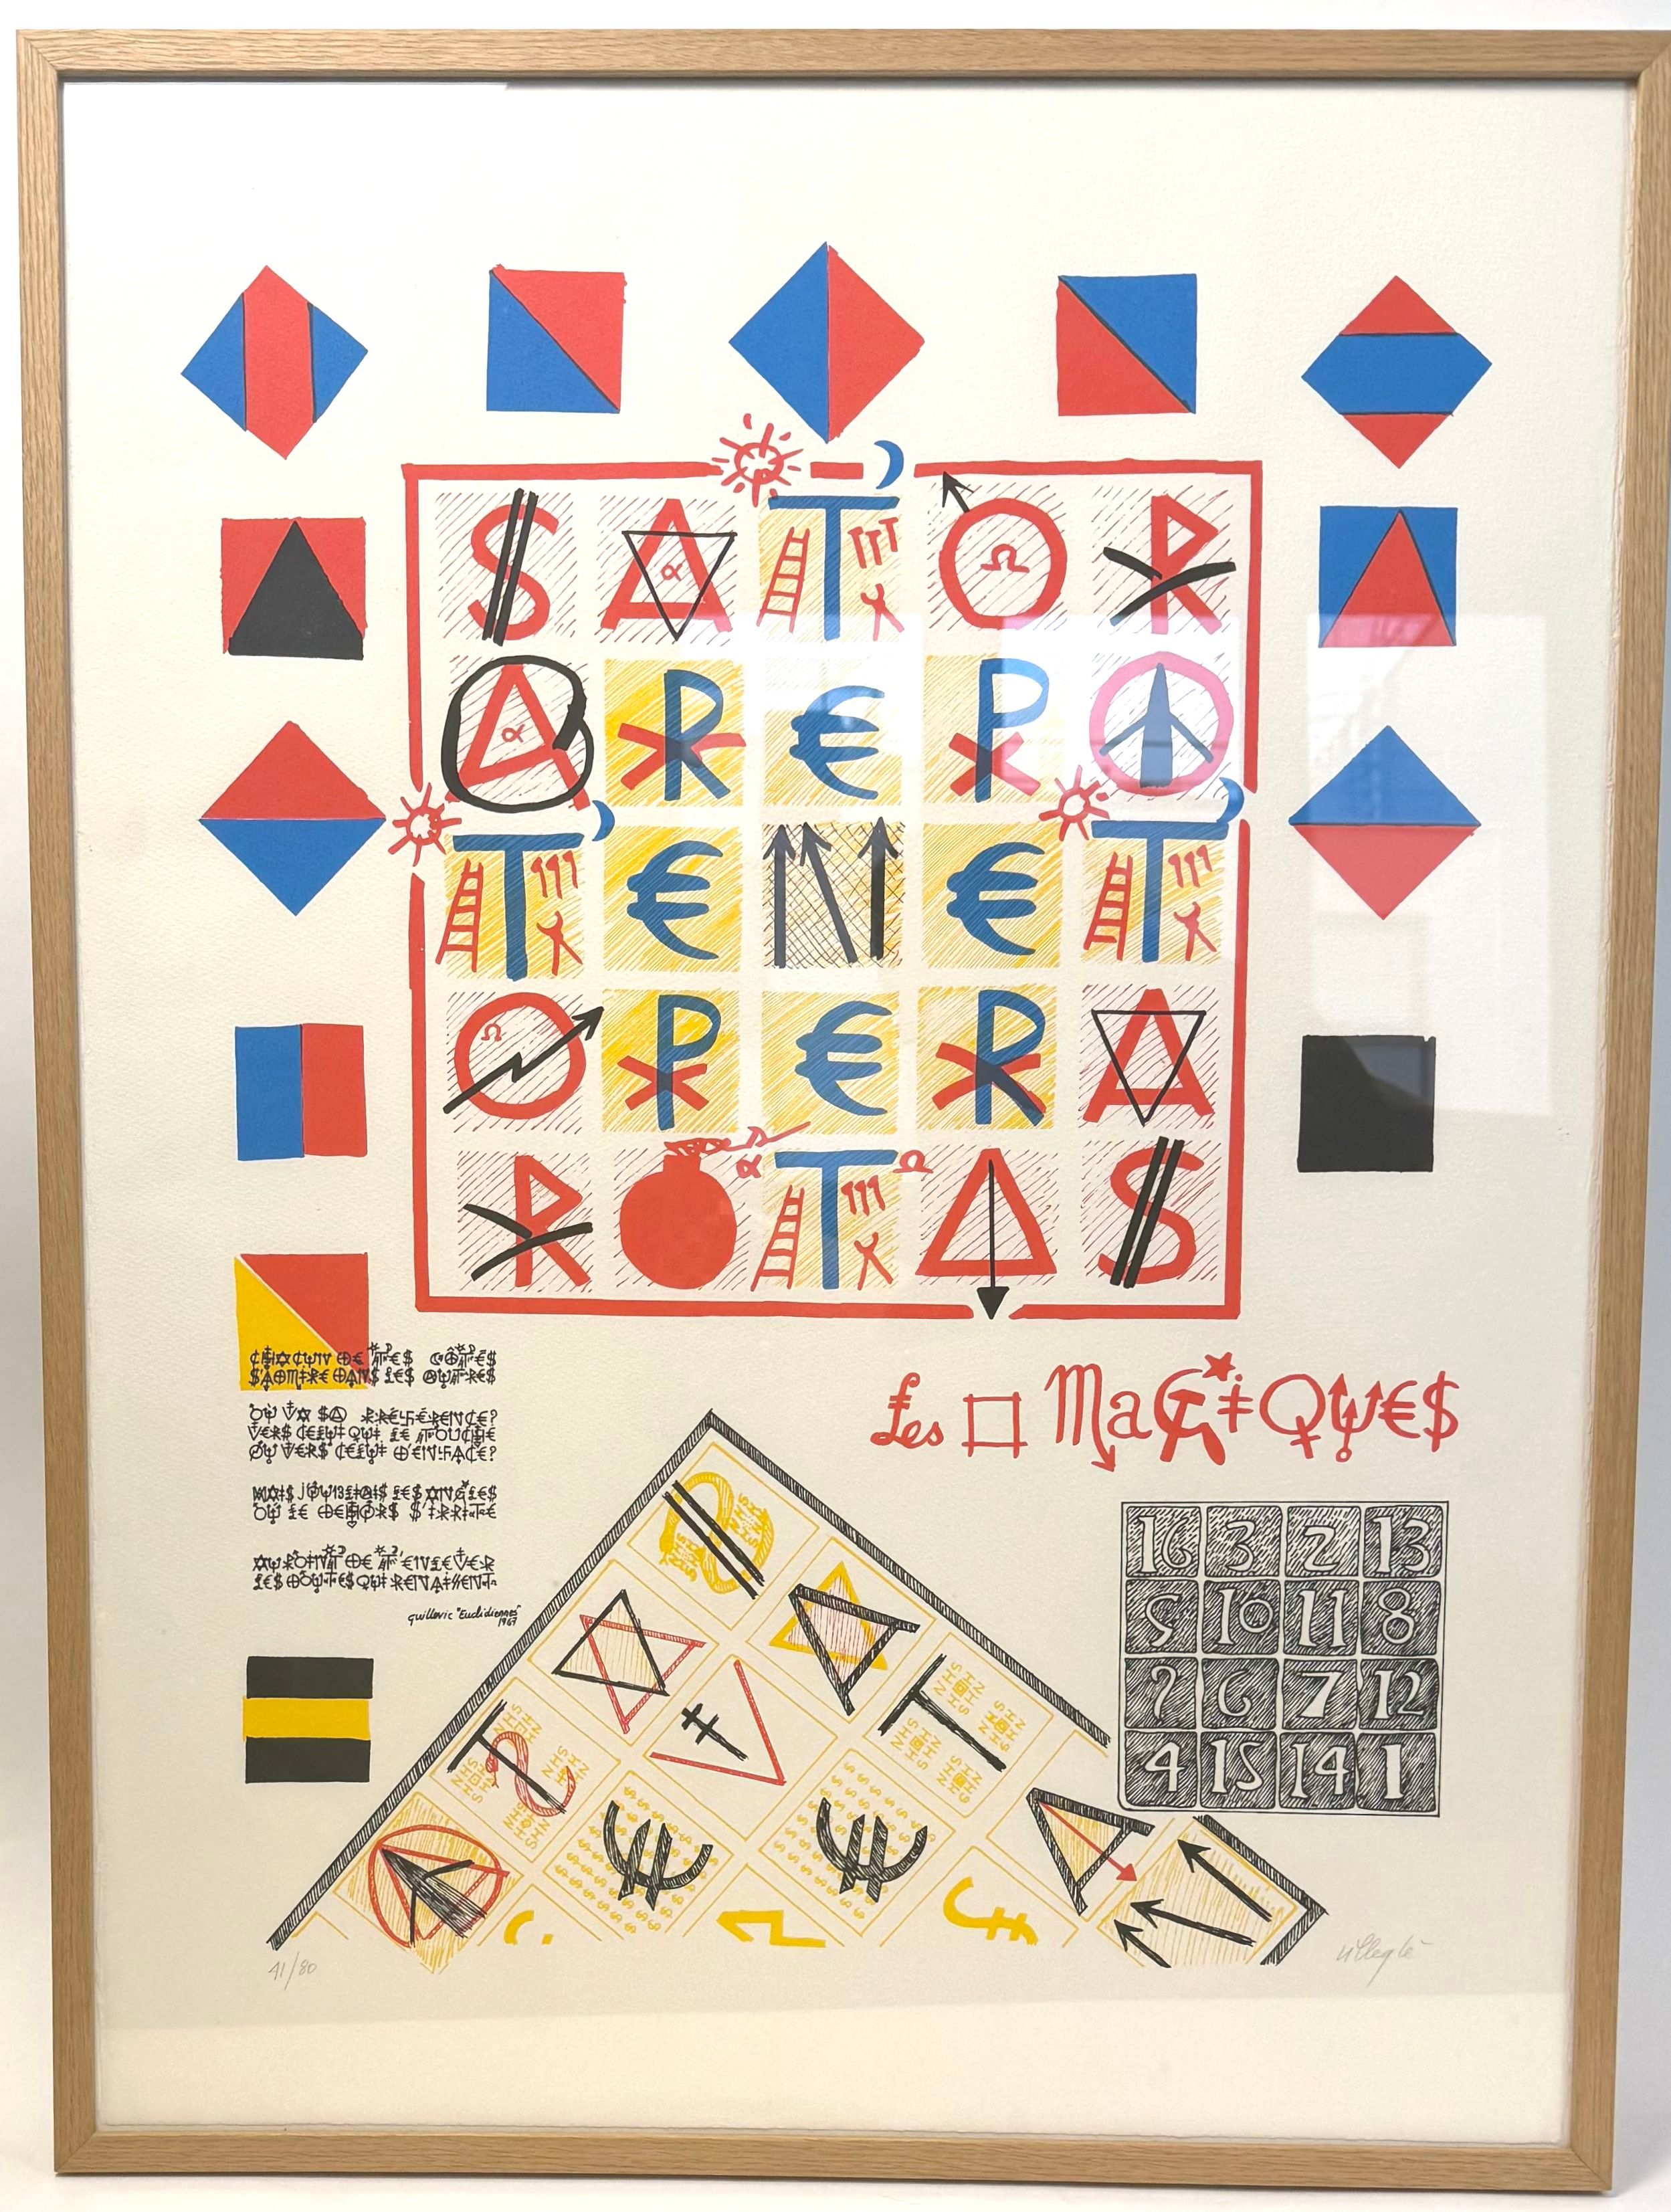 SATOR
AR€PO
T€N€T
OP€RA
ROTAS
CHACUN DE TES CÔTÉS
S'ADMIRE DANS LES AUTRES
OÙ VA SA PRÉFÉRENCE?
VERS CELUI QUI LE TOUCHE
OU VERS CELUI D'EN FACE?
MAIS J'OUBLIAIS LES ANGLES
OÙ LE DEHORS S'IRRITE
AU POINT DE T'ENLEVER
LES DOUTES QUI RENAISSENT
guillevic "Euclidiennes"
1967
£es □ MaGiQU€$
16 3 2 13
5 10 11 8
9 6 7 12
4 15 14 1
41/80
villeglé